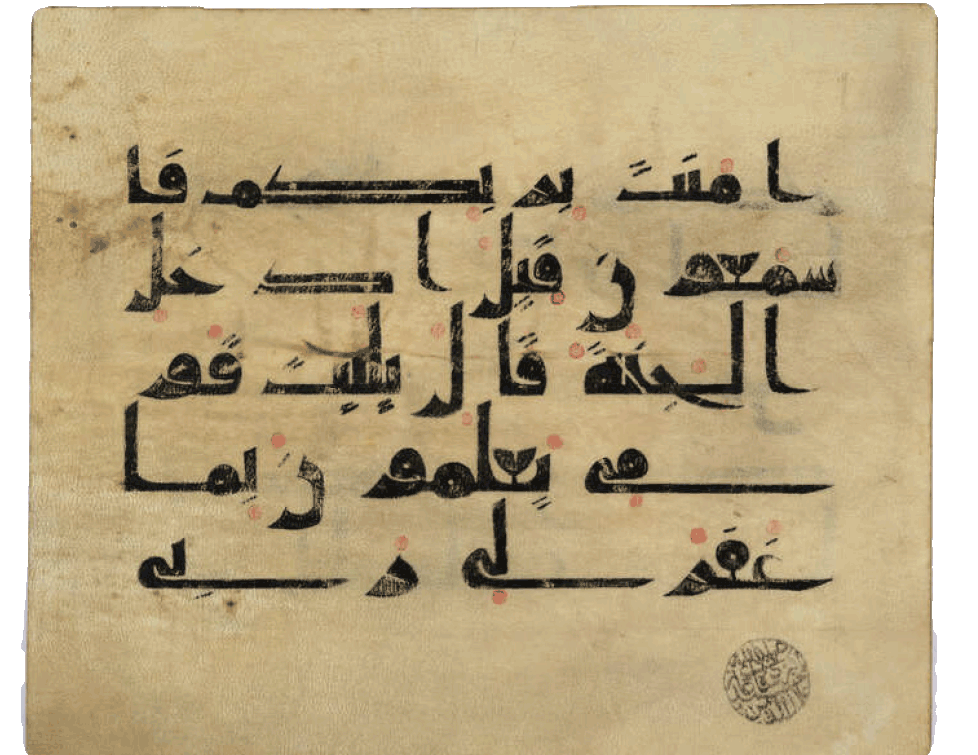 امنت بربكم فا
سمعو ن قيل ا د خل
ا لجنة قا ل يليت قو
مي يعلمو ن بما
غفر لي ر بي